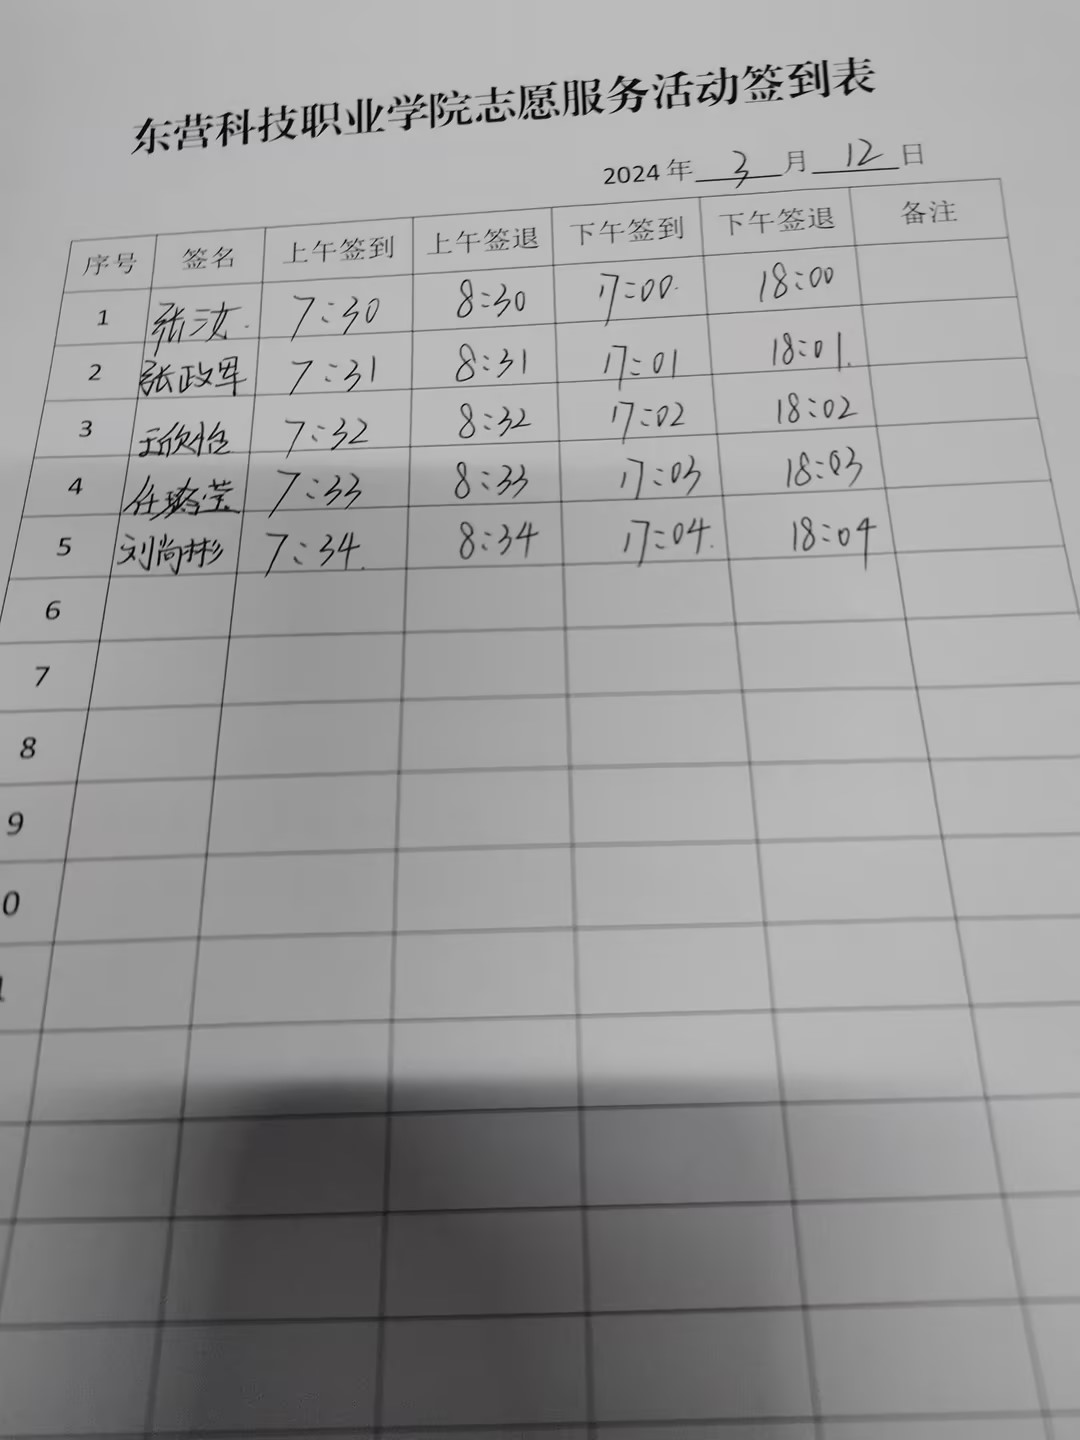 东营科技职业学院志愿服务活动签到表
2024 年 3 月 12 日
序号 签名 上午签到 上午签退 下午签到 下午签退 备注
1 张汝 7:30 8:30 17:00 18:00
2 张政军 7:31 8:31 17:01 18:01
3 于欣怡 7:32 8:32 17:02 18:02
4 7:33 8:33 17:03 18:03
5 刘尚彬 7:34 8:34 17:04 18:04
6
7
8
9
0
1